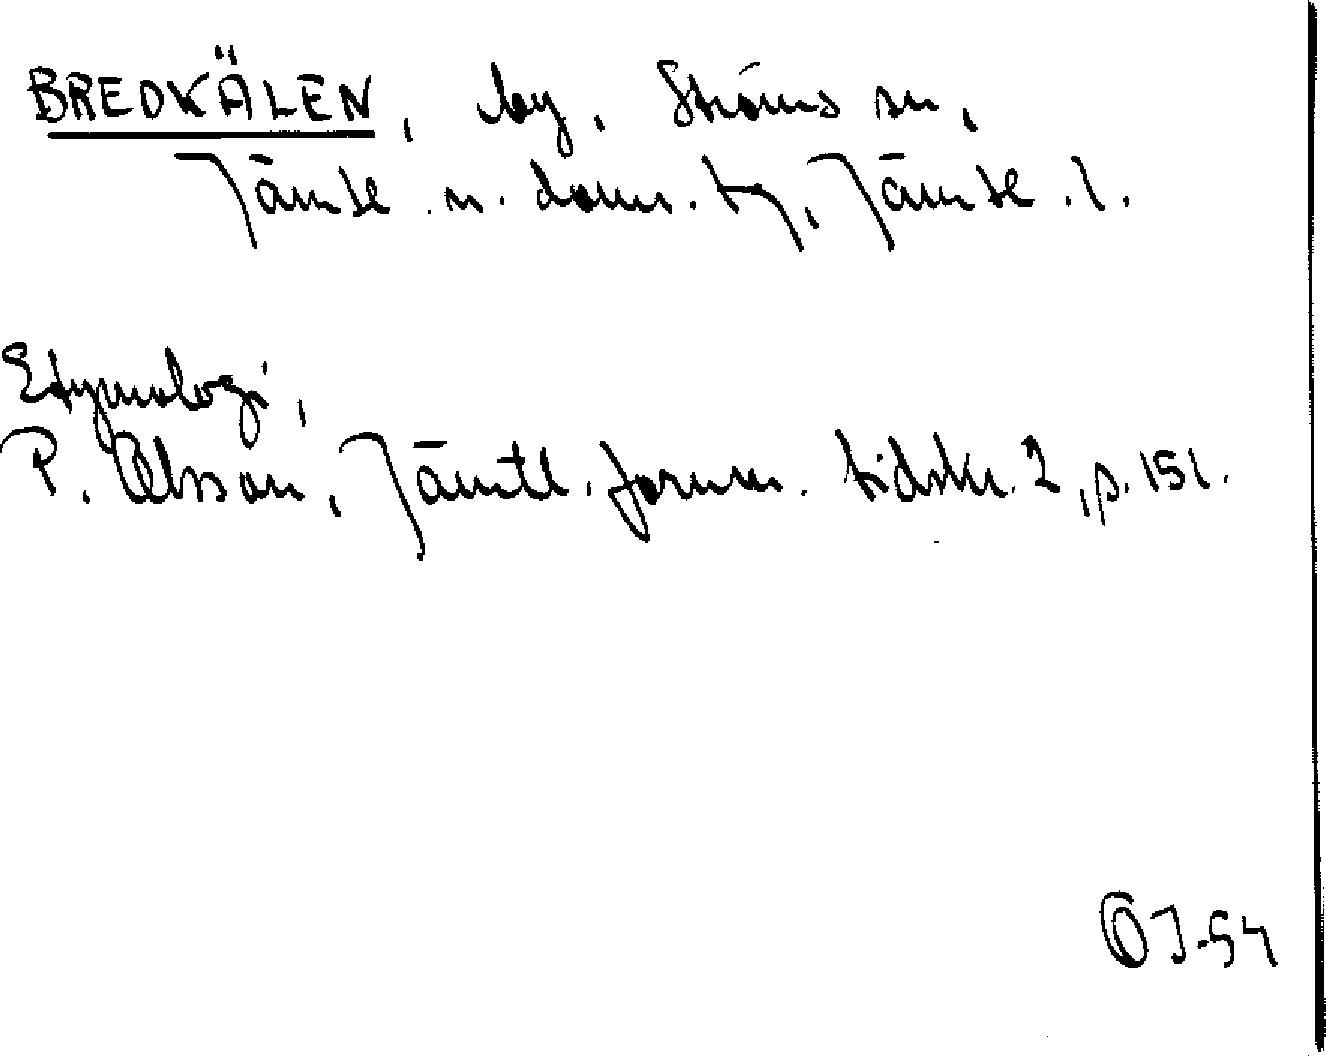 BREDKÄLEN, by, Ströms sn,
Jämtl. n. doms. tg, Jämtl. l.
Etymologi,
P. Olsson, Jämtl. fornm. tidskr. 2, p. 151.
OJ-54